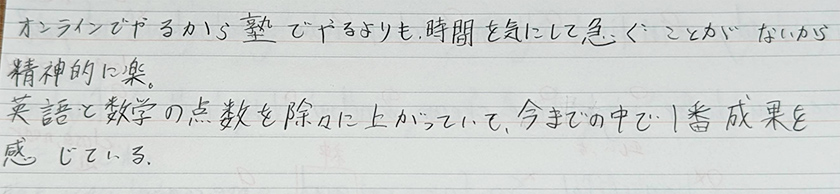 オンラインでやるから塾でやるよりも、時間を気にして急ぐことがないから
精神的に楽。
英語と数学の点数を除々に上がっていて、今までの中で1番成果を
感じている。